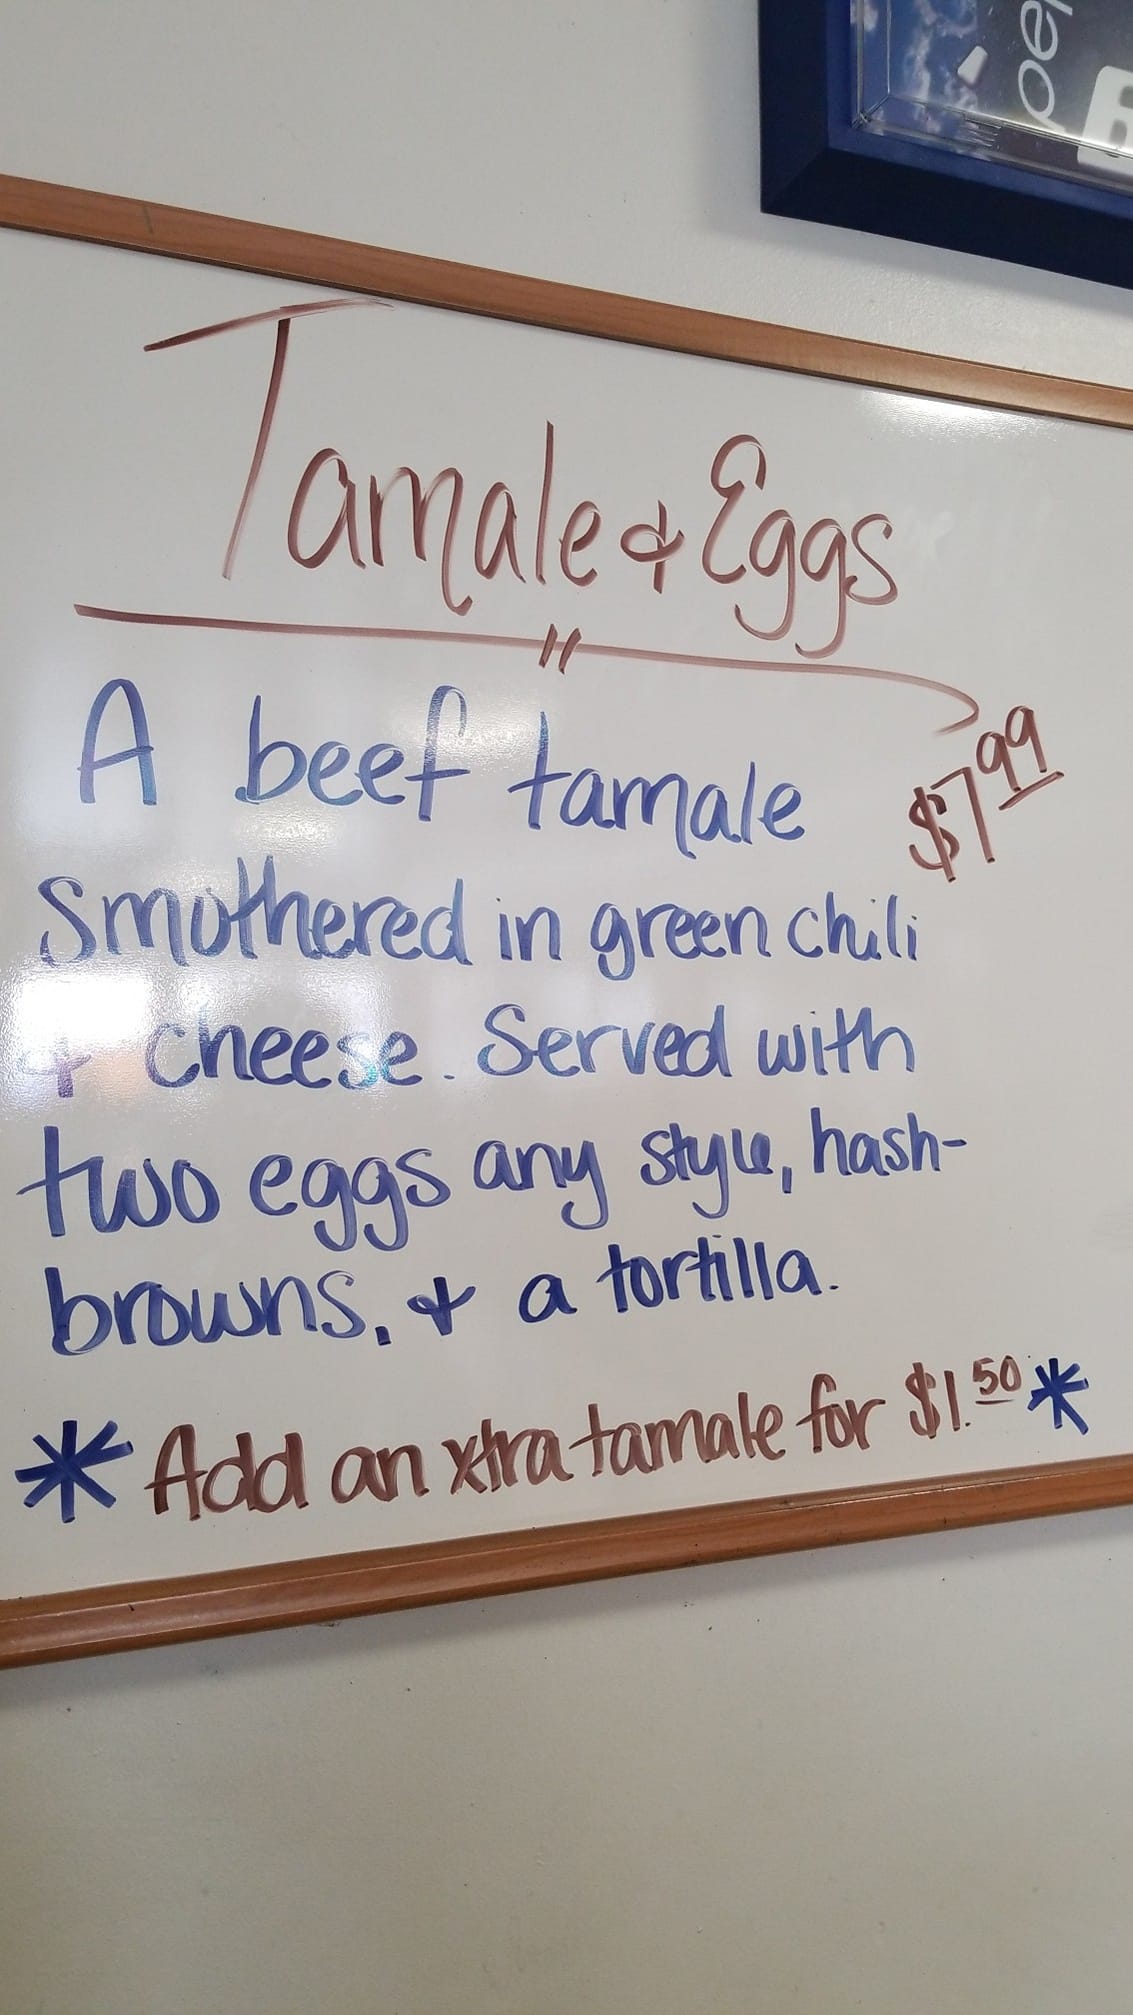 Tamale & Eggs
A beef tamale
$7.99
Smothered in green chili
& cheese. Served with
two eggs any style, hash-
browns, & a tortilla.
* Add an xtra tamale for $1.50 *